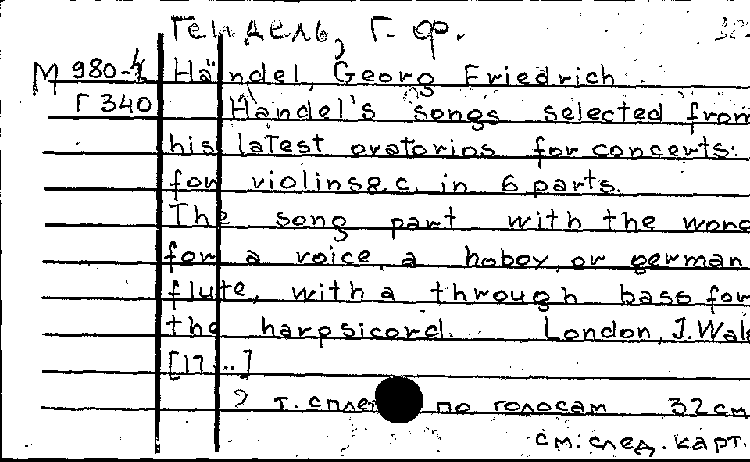 Гендель, Г. Ф.
М 980-4 Händel, Georg Friedrich
Г 340 Handel's songs selected from
his latest oratorios for concerts:
for violins &.c. in 6 parts.
The song part with the word
for a voice, a hoboy, or german
flute, with a through bass for
the harpsicord. London, J. Wal
[17...]
? т. сплет по голосам 32 см
см. след. карт.